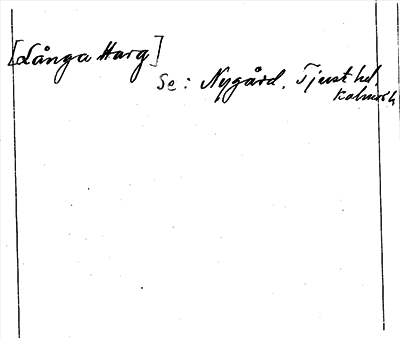 [Långa Harg]
Se: Nygård. Tjust hd
Kalmar l.